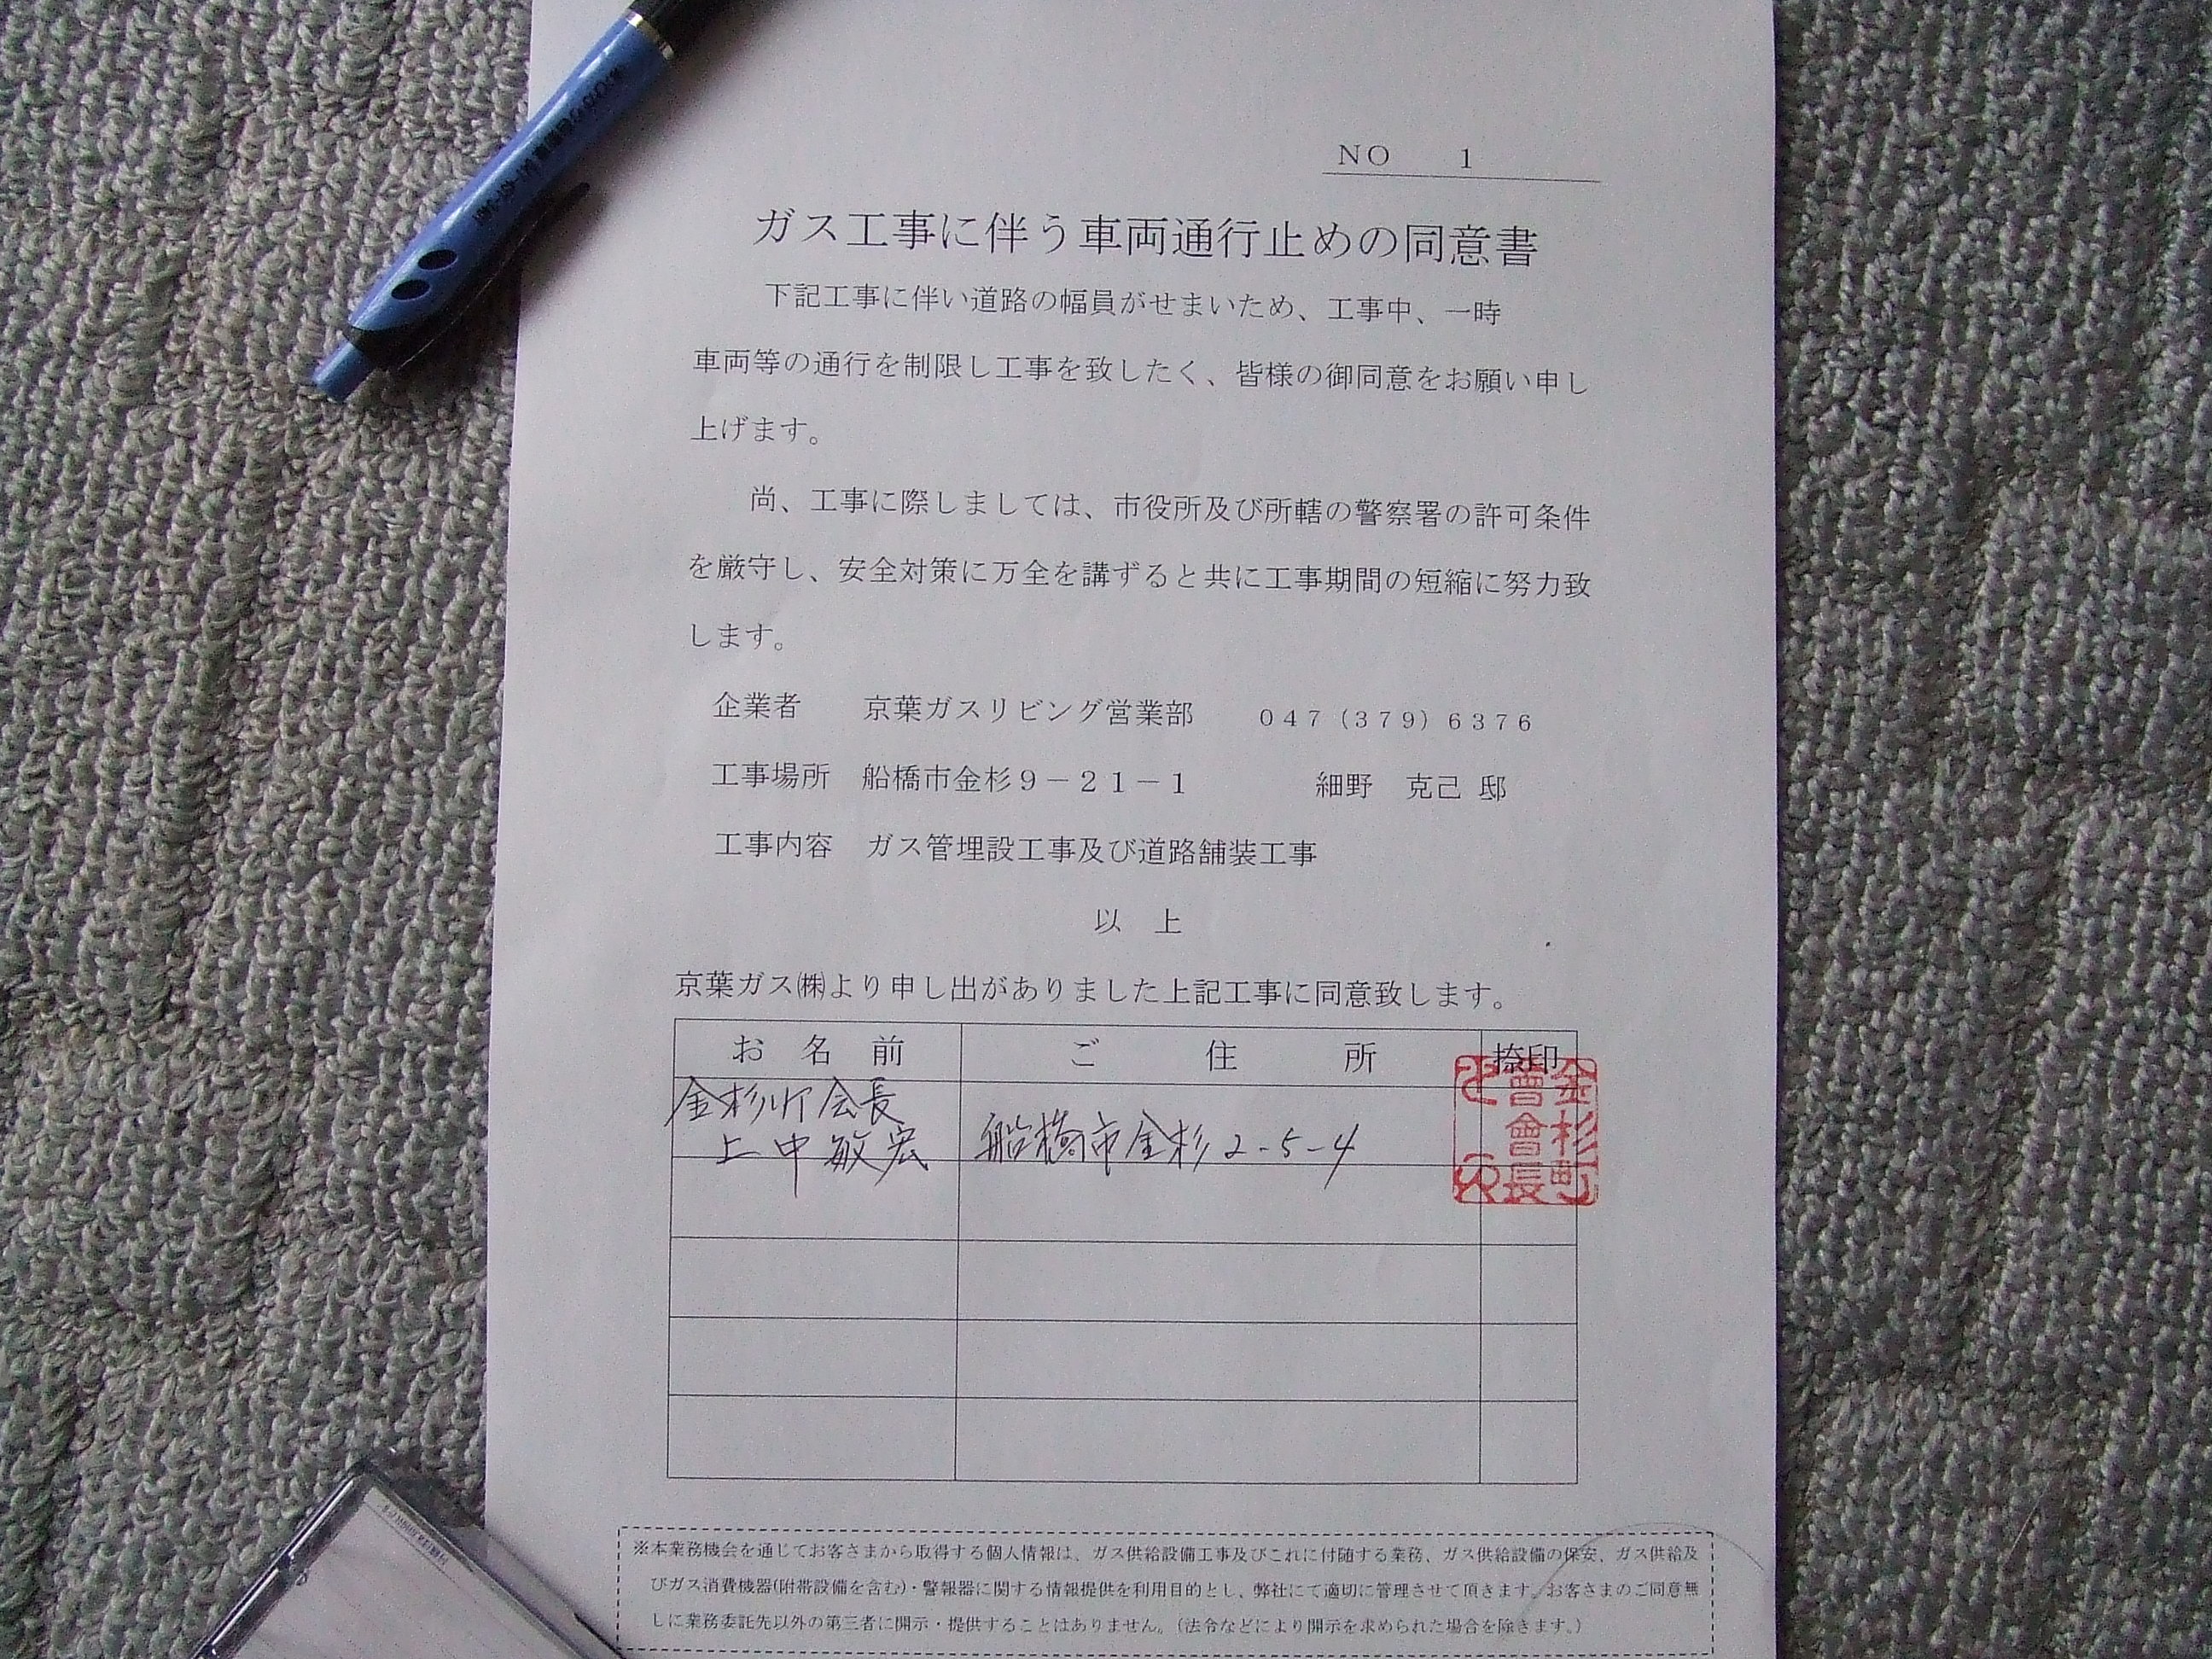 NO 1
ガス工事に伴う車両通行止めの同意書
下記工事に伴い道路の幅員がせまいため、工事中、一時
車両等の通行を制限し工事を致したく、皆様の御同意をお願い申し
上げます。
尚、工事に際しましては、市役所及び所轄の警察署の許可条件
を厳守し、安全対策に万全を講ずると共に工事期間の短縮に努力致
します。
企業者 京葉ガスリビング営業部 047(379)6376
工事場所 船橋市金杉9-21-1 細野 克己 邸
工事内容 ガス管埋設工事及び道路舗装工事
以 上
京葉ガス㈱より申し出がありました上記工事に同意致します。
お 名 前 ご 住 所 捺印
金杉町会長
上中敏宏 船橋市金杉2-5-4
金杉町
會會長
※本業務機会を通じてお客さまから取得する個人情報は、ガス供給設備工事及びこれに付随する業務、ガス供給設備の保安、ガス供給及
びガス消費機器(附帯設備を含む)・警報器に関する情報提供を利用目的とし、弊社にて適切に管理させて頂きます。お客さまのご同意無
しに業務委託先以外の第三者に開示・提供することはありません。(法令などにより開示を求められた場合を除きます。)